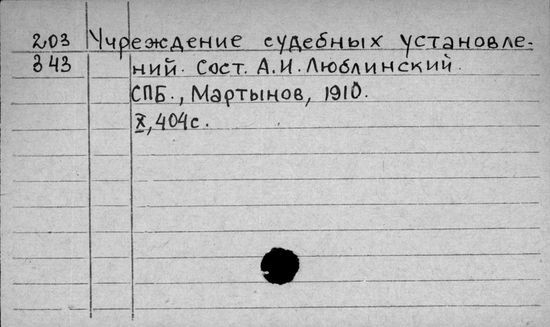 203 Учреждение судебных установле-
343 ний. Сост. А.И. Люблинский.
СПБ., Мартынов, 1910.
X, 404 с.